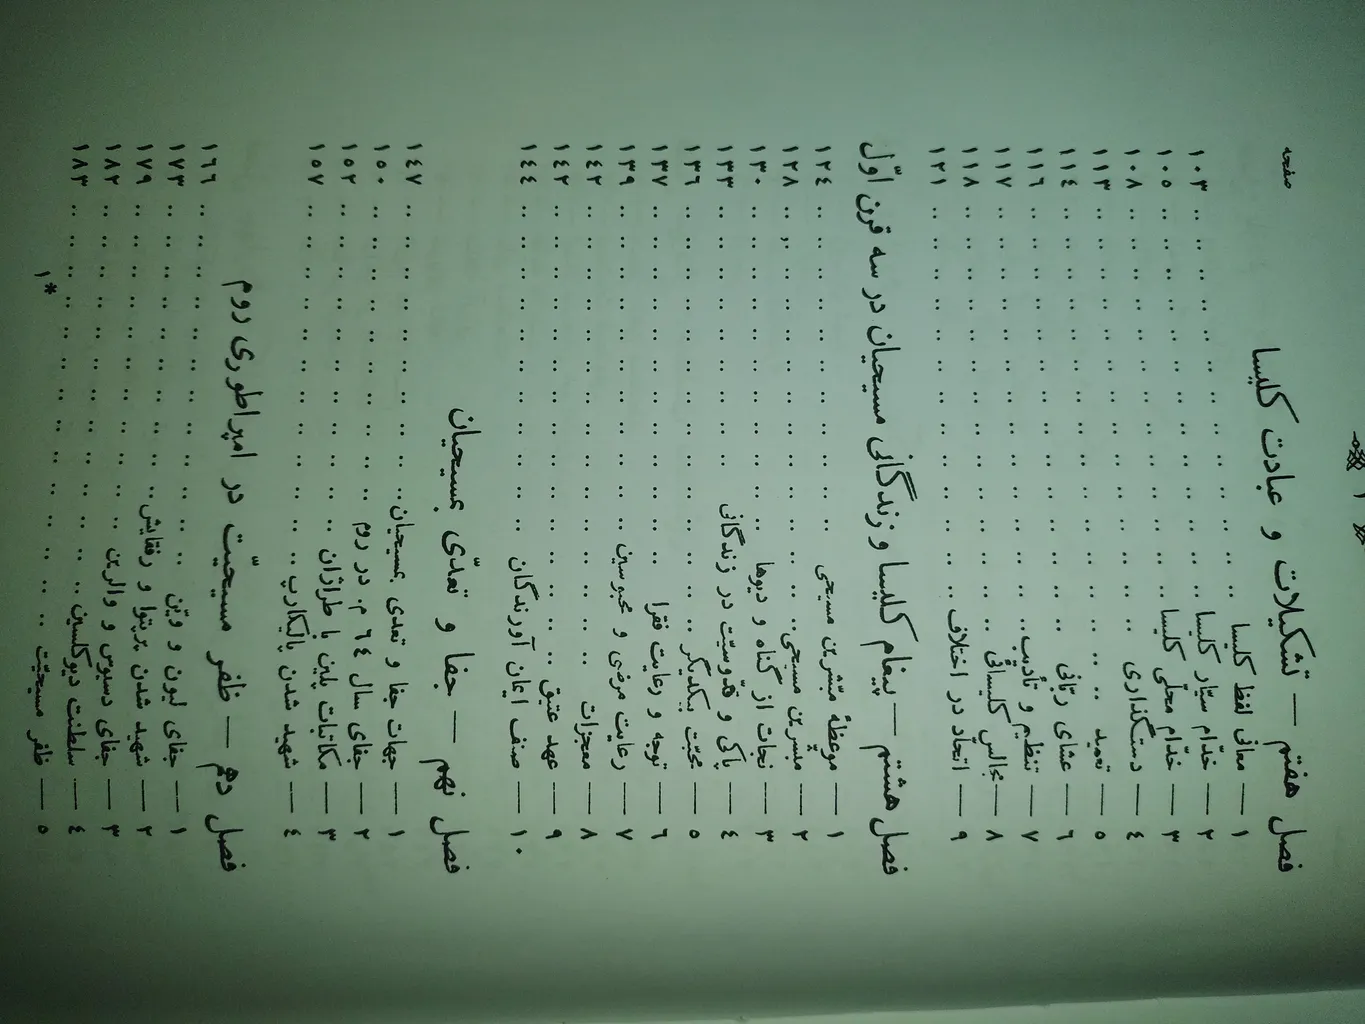 ۱
صفحه
فصل هفتم — تشکیلات و عبادت کلیسا
۱ — معانی لفظ کلیسا .. .. .. .. .. .. .. .. .. .. .. .. ۱۰۳
۲ — خدّام سیّار کلیسا .. .. .. .. .. .. .. .. .. .. .. .. ۱۰۵
۳ — خدّام محلّی کلیسا .. .. .. .. .. .. .. .. .. .. .. .. ۱۰۸
٤ — دستگذاری .. .. .. .. .. .. .. .. .. .. .. .. .. ۱۱۳
٥ — تعمید .. .. .. .. .. .. .. .. .. .. .. .. .. ۱۱٤
٦ — عشای ربّانی .. .. .. .. .. .. .. .. .. .. .. .. .. ۱۱٦
۷ — تنظیم و تأدیب .. .. .. .. .. .. .. .. .. .. .. .. .. ۱۱۷
۸ — مجالس کلیسائی .. .. .. .. .. .. .. .. .. .. .. .. .. ۱۱۸
۹ — اتّحاد در اختلاف .. .. .. .. .. .. .. .. .. .. .. .. .. ۱۲۱
فصل هشتم — پیغام کلیسا و زندگانی مسیحیان در سه قرن اوّل
۱ — موعظهٔ مبشّرین مسیحی .. .. .. .. .. .. .. .. .. .. .. ۱۲٤
۲ — مبشّرین مسیحی .. .. .. .. .. .. .. .. .. .. .. .. .. ۱۲۸
۳ — نجات از گناه و دیوها .. .. .. .. .. .. .. .. .. .. .. ۱۳۰
٤ — پاکی و قدّوسیّت در زندگانی .. .. .. .. .. .. .. .. .. .. ۱۳۳
٥ — محبّت یکدیگر .. .. .. .. .. .. .. .. .. .. .. .. .. ۱۳٦
٦ — توجه و رعایت فقرا .. .. .. .. .. .. .. .. .. .. .. .. ۱۳۷
۷ — رعایت مرضی و محبوسین .. .. .. .. .. .. .. .. .. .. .. ۱۳۹
۸ — معجزات .. .. .. .. .. .. .. .. .. .. .. .. .. .. ۱٤۲
۹ — عهد عتیق .. .. .. .. .. .. .. .. .. .. .. .. .. .. ۱٤۲
۱۰ — صنف ایمان آورندگان .. .. .. .. .. .. .. .. .. .. .. ۱٤٤
فصل نهم — جفا و تعدّی بمسیحیان
۱ — جهات جفا و تعدی بمسیحیان .. .. .. .. .. .. .. .. .. .. ۱٤۷
۲ — جفای سال ٦٤ م. در روم .. .. .. .. .. .. .. .. .. .. ۱٥۰
۳ — مکاتبات پلین با طراژان .. .. .. .. .. .. .. .. .. .. .. ۱٥۲
٤ — شهید شدن پالیکارپ .. .. .. .. .. .. .. .. .. .. .. .. ۱٥۷
فصل دهم — ظفر مسیحیّت در امپراطوری روم
۱ — جفای لیون و وین .. .. .. .. .. .. .. .. .. .. .. .. ۱٦٦
۲ — شهید شدن پرپتوا و رفقایش .. .. .. .. .. .. .. .. .. .. ۱۷۳
۳ — جفای دسیوس و والرین .. .. .. .. .. .. .. .. .. .. .. ۱۷۹
٤ — سلطنت دیوکلسین .. .. .. .. .. .. .. .. .. .. .. .. ۱۸۲
٥ — ظفر مسیحیّت .. .. .. .. .. .. .. .. .. .. .. .. .. ۱۸۳
*۱